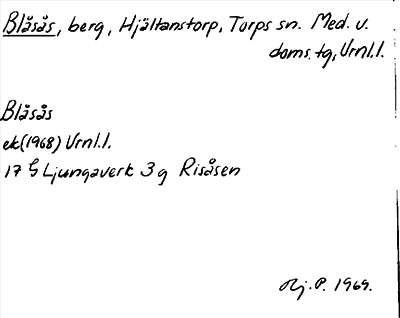 Blåsås, berg, Hjältanstorp, Torps sn. Med. v.
doms. tg, Vrnl.l.
Blåsås
ek(1968) Vrnl.l.
17 G Ljungaverk 3 g Risåsen
Rj. P. 1969.